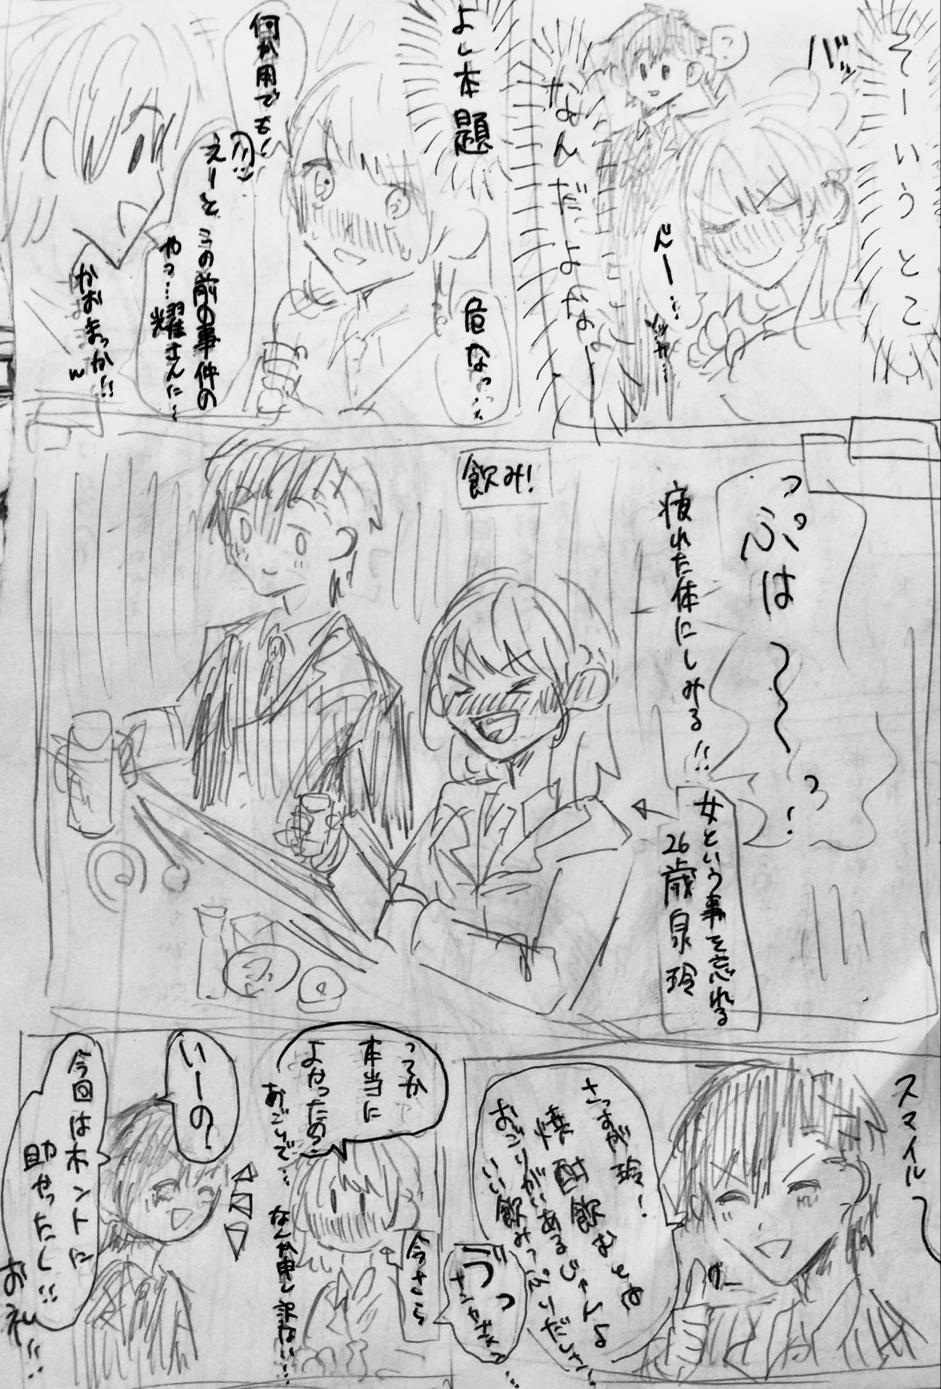 そーいうとこ
なんだよなぁー
バッ
?
んー…
よし本題
危なっ…
何か用でも?
えーと この前の事件の
やつ…耀さんに…
かおまっか!!
w
っぷは〜〜っ!
疲れた体にしみる!!
飲み!
女という事を忘れる
26歳 泉 玲
スマイル〜
さっすが玲!
焼酎飲むとは
おごりがいあるじゃんよ
いい飲みっぷりだし…
うっ
ってか
本当に
よかったの?
おごしで…
なんか申し訳ない…
今さら
いーの?
今回はホントに
助かったし!!
お礼!!